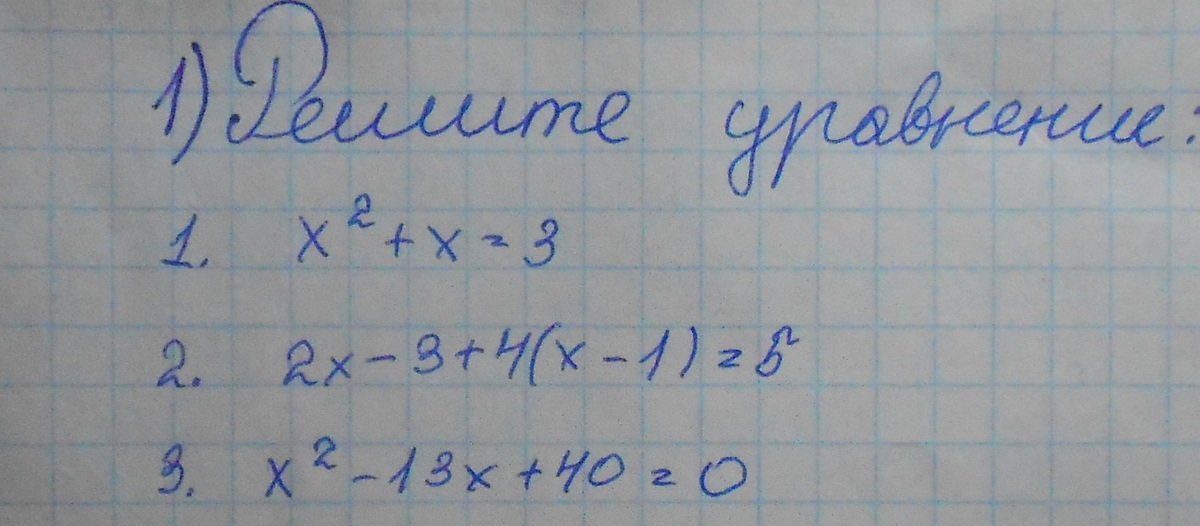 1) Решите уравнение:
1. x² + x = 3
2. 2x - 3 + 4(x - 1) = 5
3. x² - 13x + 40 = 0